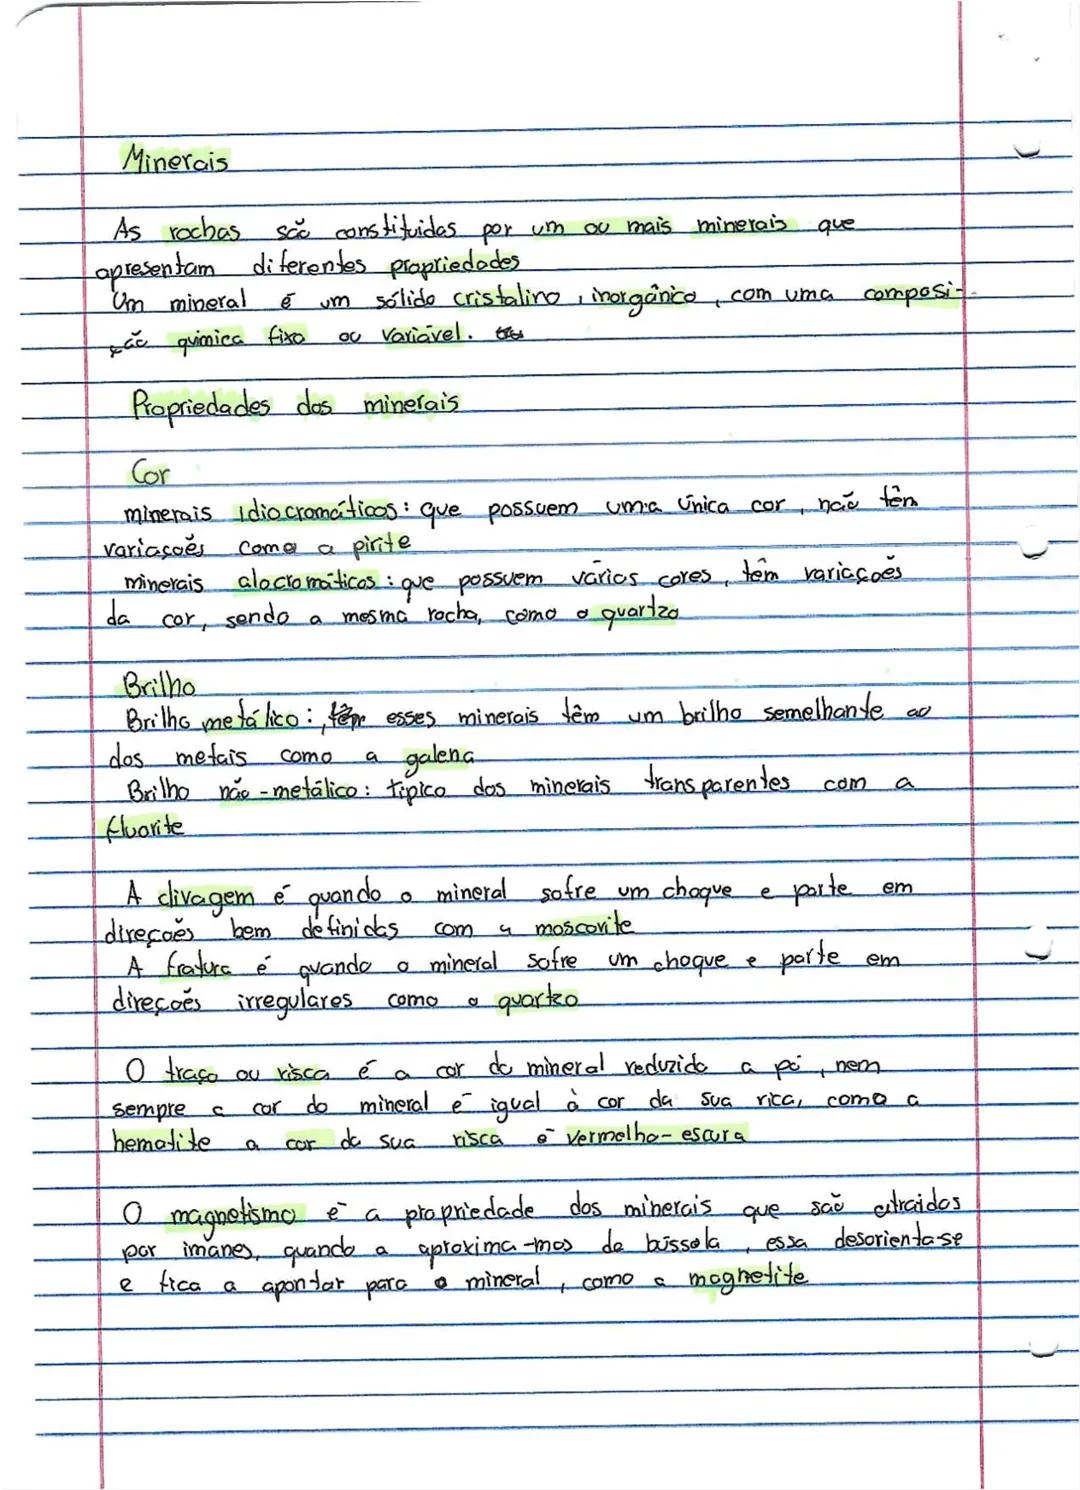 Minerais
As rochas são constituidas por um ou mais minerais que
apresentam diferentes propriedades
Um mineral é um sólido cristalino, inorgânico, com uma composi-
ção quimica fixa ou variável.
Propriedades dos minerais
Cor
minerais Idiocromáticos: que possuem uma única cor, não têm
variações como a pirite
minerais alocromáticos: que possuem várias cores, têm variações
da cor, sendo a mesma rocha, como o quartzo
Brilho
Brilho metálico: esses minerais têm um brilho semelhante ao
dos metais como a galena
Brilho não-metálico: típico dos minerais transparentes com a
fluorite
A clivagem é quando o mineral sofre um choque e parte em
direções bem definidas com a moscovite
A fratura é quando o mineral sofre um choque e parte em
direções irregulares como o quartzo
O traço ou risca é a cor do mineral reduzido a pó, nem
sempre a cor do mineral é igual à cor da sua rica, como a
hematite a cor da sua risca é vermelho-escura
O magnetismo é a propriedade dos minerais que são atraidos
por imanes, quando a aproxima-mos da bússola, essa desorienta-se
e fica a apontar para o mineral, como a magnetite